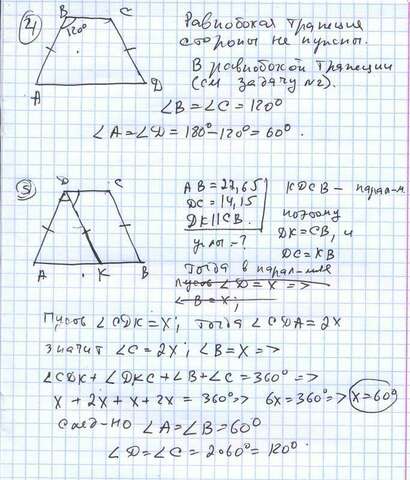 4)
B C
120°
A D
Равнобокая трапеция
стороны не нужны.
В равнобокой трапеции
(см задачу №2).
∠B=∠C=120°
∠A=∠D=180°-120°=60°.
5)
D C
A K B
AB=27,65
DC=14,15
DK||CB.
углы-?
KDCB – парал-м
поэтому
DK=CB, и
DC=KB
Тогда в парал-ме
Пусть ∠D=X =>
∠B=X;
Пусть ∠CDK=X; тогда ∠CDA=2X
значит ∠C=2X; ∠B=X =>
∠CDK+∠DKC+∠B+∠C=360° =>
X+2X+X+2X=360° => 6X=360° => X=60°
след-но ∠A=∠B=60°
∠D=∠C=2∘60°=120°.